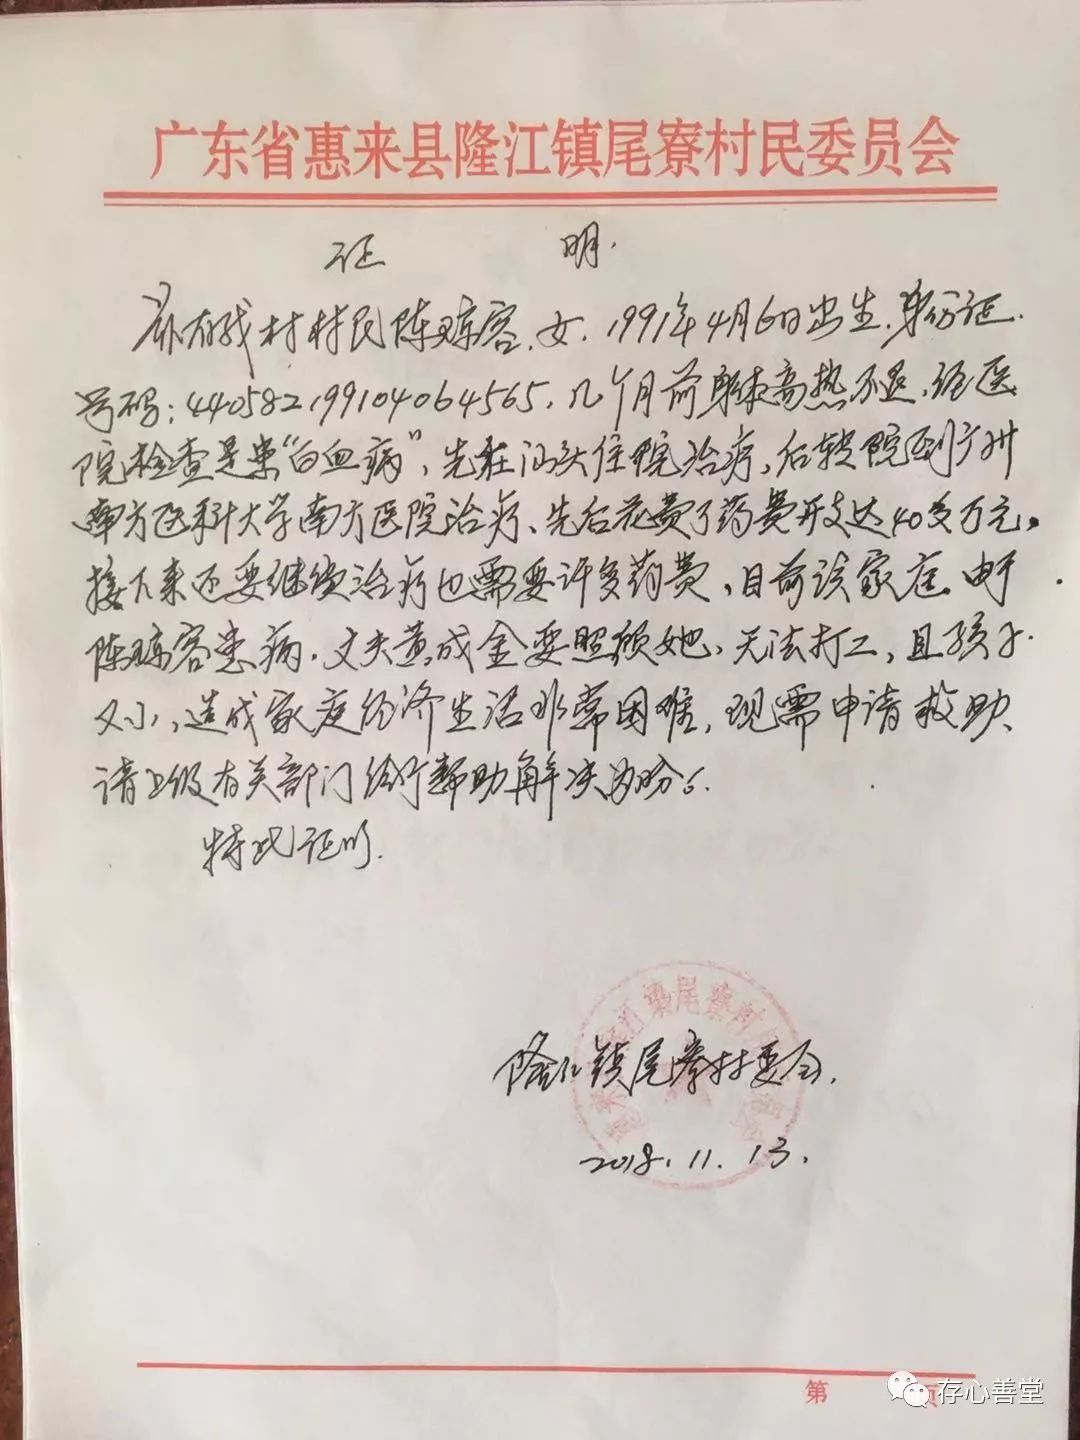 广东省惠来县隆江镇尾寮村民委员会
证 明.
兹有我村村民陈琼容,女,1991年4月6日出生,身份证
号码:440582199104064565,几个月前身体高热不退,经医
院检查是患“白血病”,先在汕头住院治疗,后转院到广州
南方医科大学南方医院治疗、先后花费了药费开支达40多万元。
接下来还要继续治疗也需要许多药费,目前该家庭由于
陈琼容患病,丈夫黄成金要照顾她,无法打工,且孩子
又小,造成家庭经济生活非常困难,现需申请救助、
请上级有关部门给予帮助解决为盼。
特此证明.
隆江镇尾寮村委会.
2018.11.13.
第 页
存心善堂